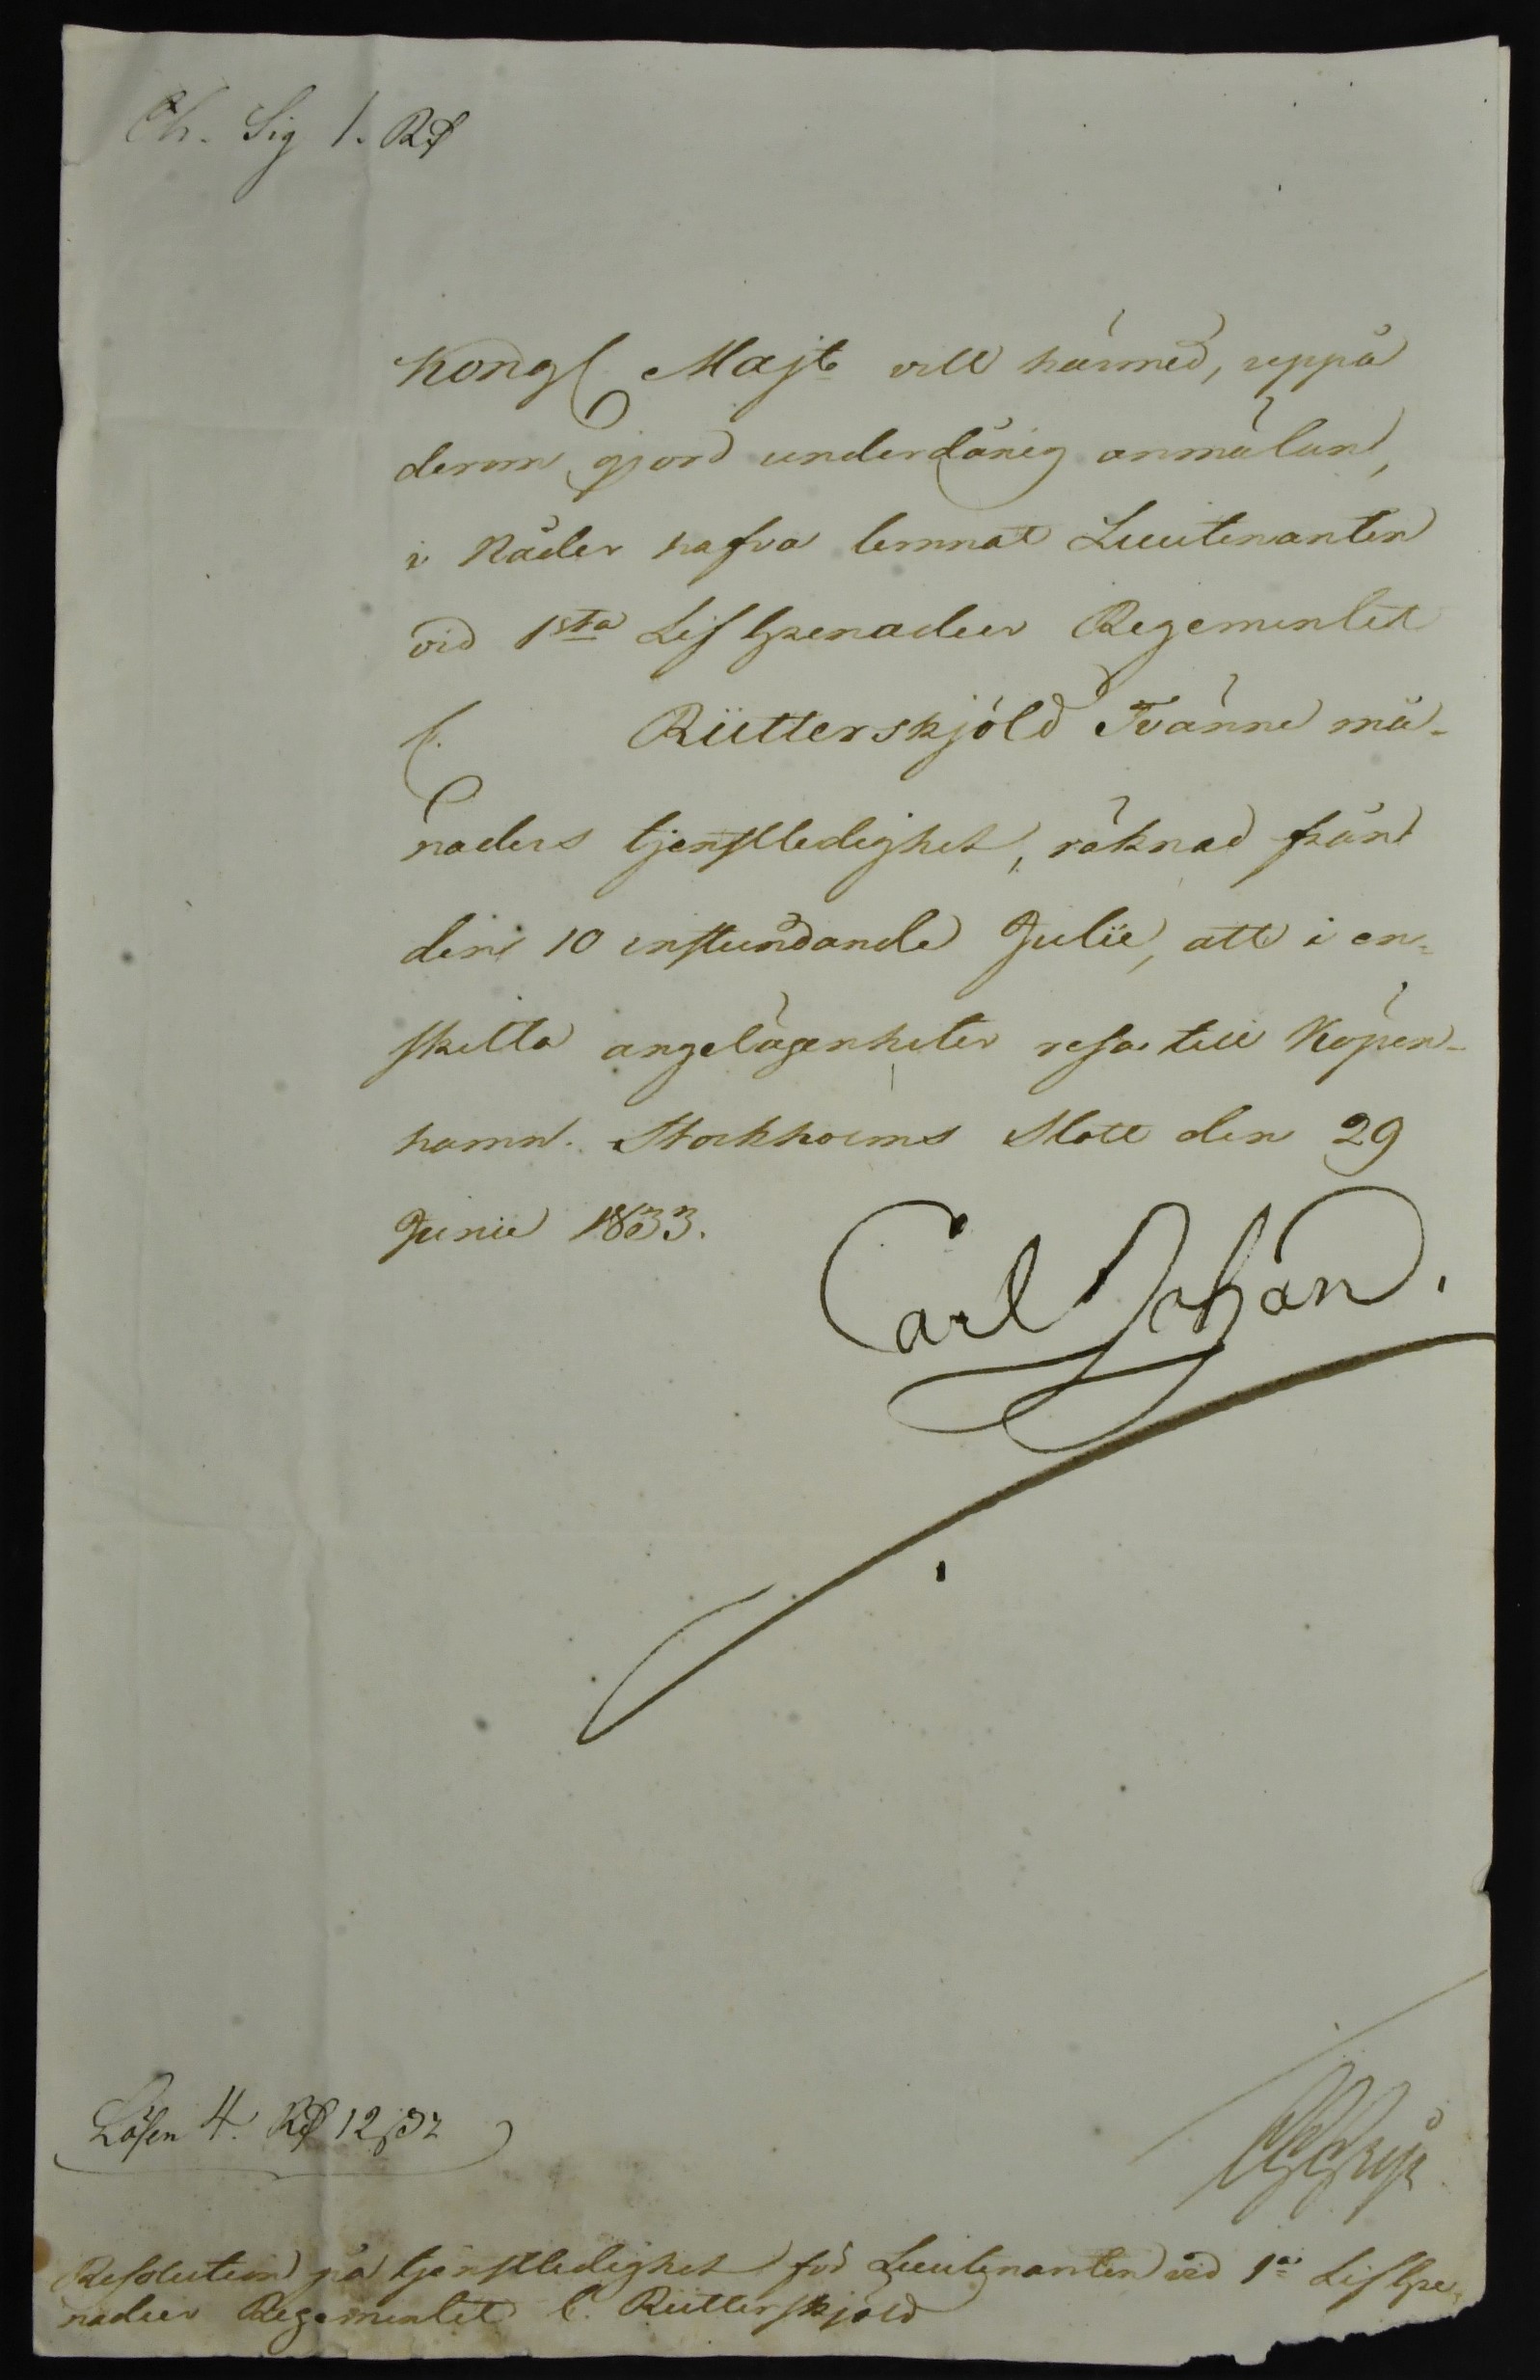 Ch. Sig 1. Rd
Kongl Majt vill härmed, uppå
derom gjord underdånig anmälan,
i Nåder hafva lemnat Lieutenanten
vid 1sta Lif Grenadier Regementet
C. Rütterskjöld Tvänne må-
naders tjenstledighet, räknad från
den 10 instundande Julii, att i en-
skilta angelägenheter resa till Köpen-
hamn. Stockholms Slott den 29
Junii 1833.
Carl Johan.
Lösen 4. Rd 12 s
Resolution på tjenstledighet för Lieutenanten vid 1a Lif Gre-
nadier Regementet C. Rütterskjöld